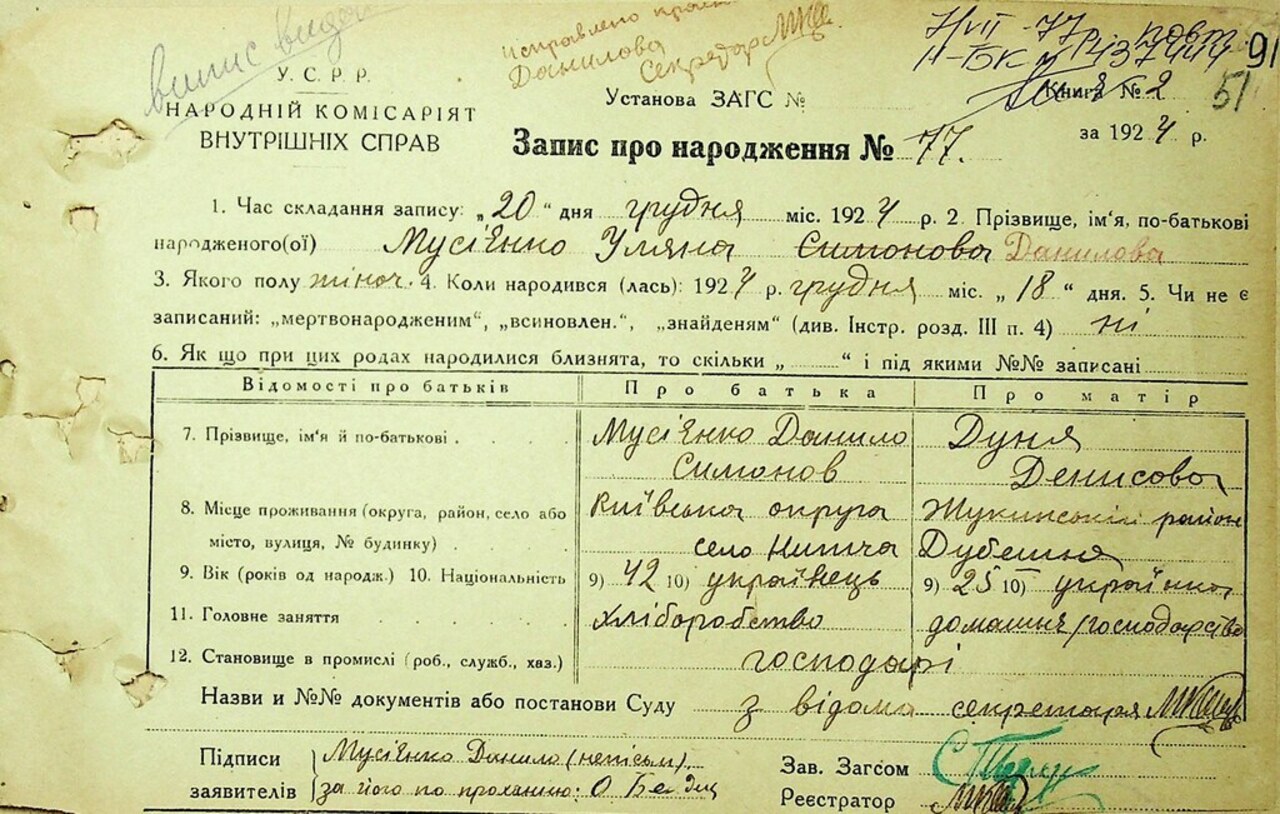 випис видан
исправлено
Данилова
Секретар
7/VII-77р. повт.
II-БК № 437444
91
51
У. С. Р. Р.
НАРОДНІЙ КОМІСАРІЯТ
ВНУТРІШНІХ СПРАВ
Установа ЗАГС №
Книга № 2
за 1924 р.
Запис про народження № 77.
1. Час складання запису: „20“ дня грудня міс. 1924 р. 2. Прізвище, ім'я, по-батькові
народженого(ої) Мусієнко Уляна Симонова Данилова
3. Якого полу жіноч. 4. Коли народився (лась): 1924 р. грудня міс. „18“ дня. 5. Чи не є
записаний: „мертвонародженим“, „всиновлен.“, „знайденям“ (див. Інстр. розд. III п. 4) ні
6. Як що при цих родах народилися близнята, то скільки „ “ і під якими №№ записані
Відомості про батьків Про батька Про матір
7. Прізвище, ім'я й по-батькові Мусієнко Данило Дуня
Симонов Денисова
8. Місце проживання (округа, район, село або Київська округа Жукинський район
місто, вулиця, № будинку) село Нижча Дубешня
9. Вік (років од народж.) 10. Національність 9) 42 10) українець 9) 25 10) українка
11. Головне заняття хліборобство домашнє господарство
12. Становище в промислі (роб., служб., хаз.) господарі
Назви и №№ документів або постанови Суду з відома секретаря
Підписи Мусієнко Данило (неписьм)
заявителів за його по проханню: О
Зав. Загсом
Реєстратор